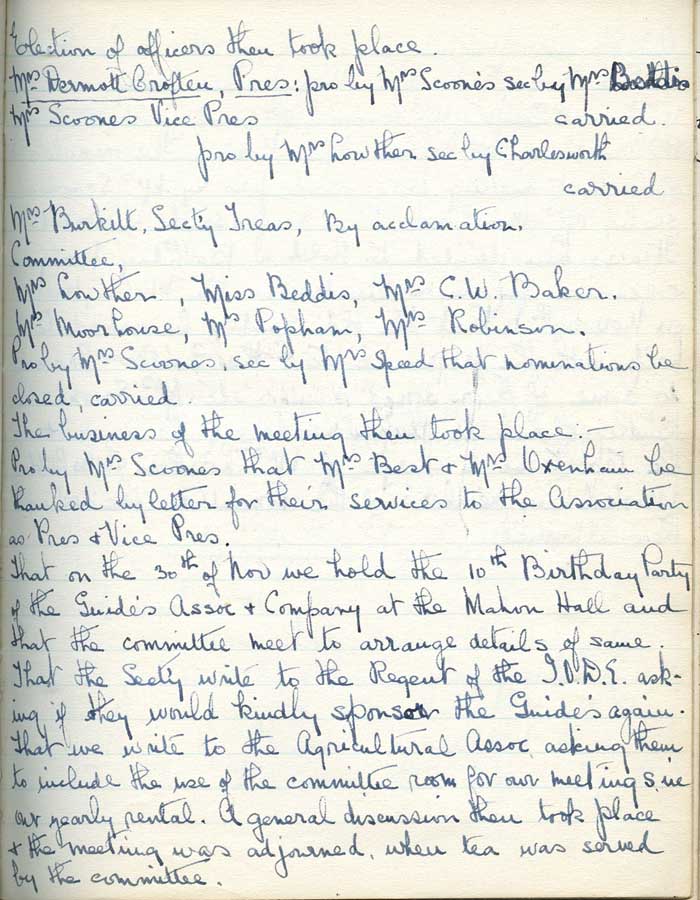 Election of officers then took place.
Mrs Dermott Crofton, Pres: pro by Mrs Scoones sec by Mrs Beddis
Mrs Scoones Vice Pres carried.
pro by Mrs Lowther sec by Charlesworth
carried
Mrs Burkitt, Sec'ty Treas, By acclamation.
Committee,
Mrs Lowther, Miss Beddis, Mrs C.W. Baker.
Mrs Moorhouse, Mrs Popham, Mrs Robinson.
Pro by Mrs Scoones, sec by Mrs Speed that nominations be
closed, carried.
The business of the meeting then took place:—
Pro by Mrs Scoones that Mrs Best & Mrs Oxenham be
thanked by letter for their services to the Association
as Pres & Vice Pres.
That on the 30th of Nov we hold the 10th Birthday Party
of the Guide's Assoc & Company at the Mahon Hall and
that the committee meet to arrange details of same.
That the Secty write to the Regent of the I.O.D.E. ask-
ing if they would kindly sponsor the Guide's again.
That we write to the Agricultural Assoc, asking them
to include the use of the committee room for our meetings in
our yearly rental. A general discussion then took place
& the meeting was adjourned, when tea was served
by the committee.